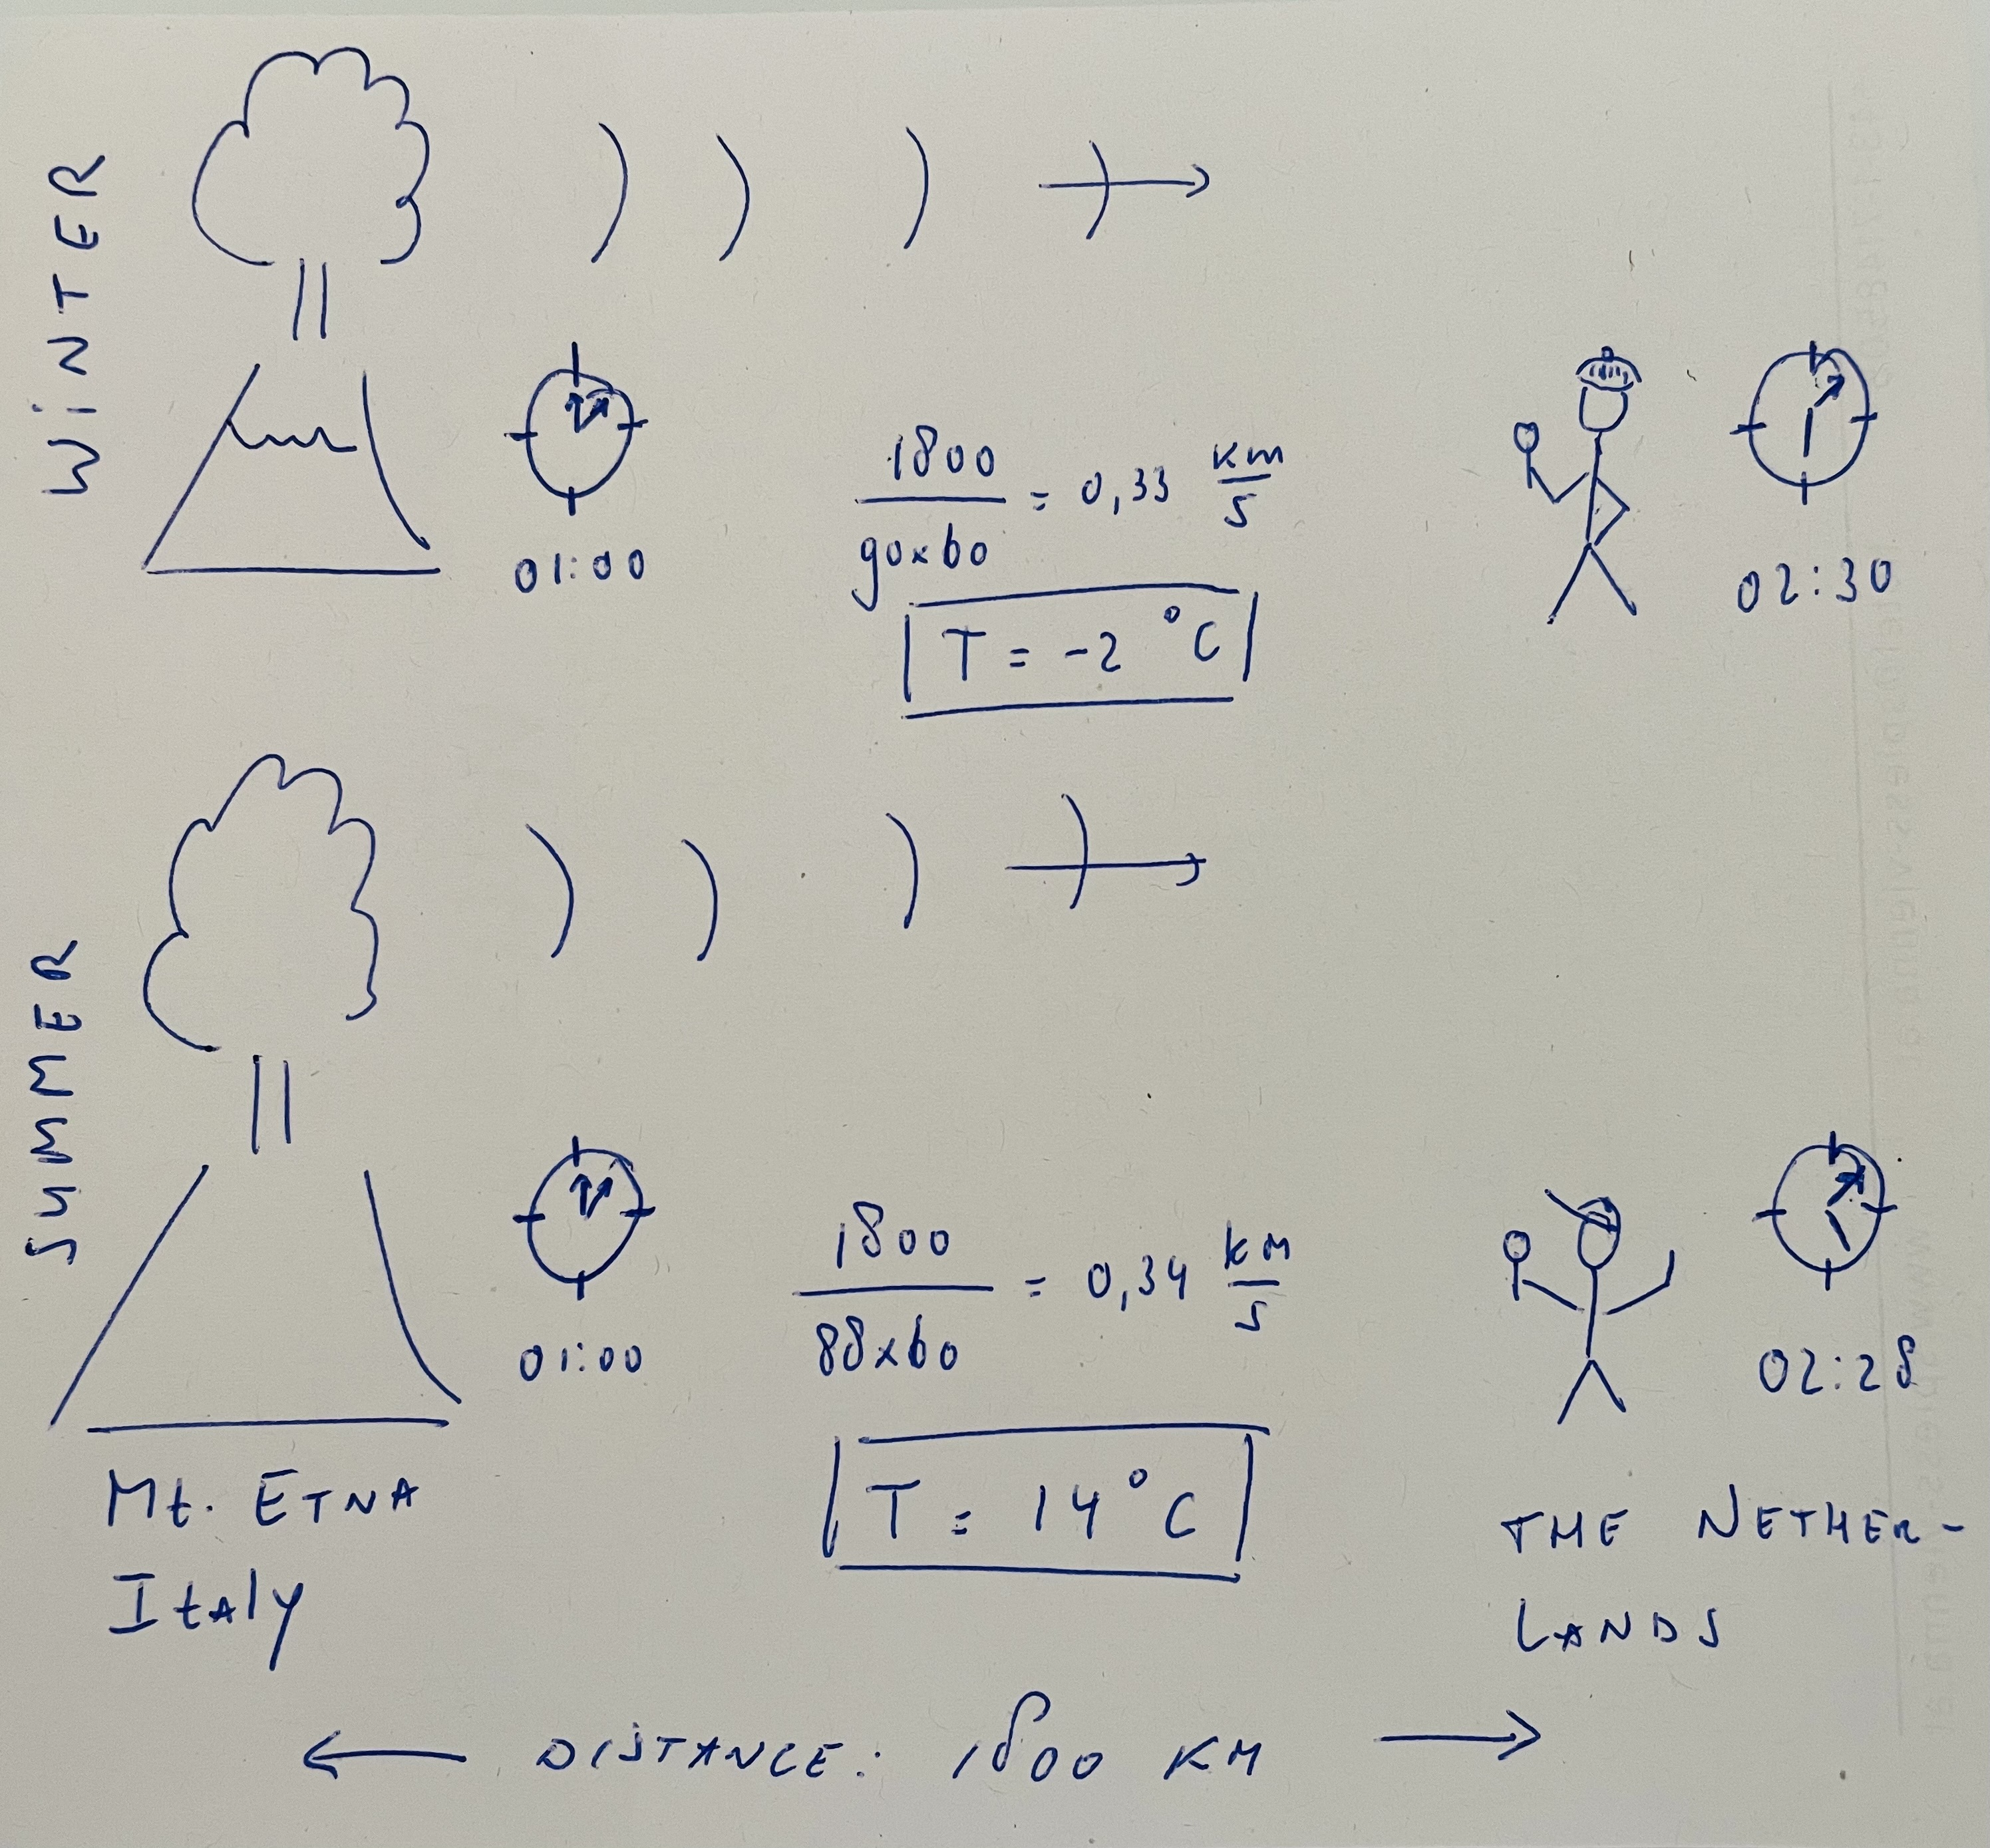 WiNTER
01:00
1800
90x60
= 0,33 km
s
T = -2 °C
02:30
SUMMER
01:00
1800
88x60
= 0,34 km
s
T = 14 °C
02:28
Mt. ETNA
Italy
THE NETHER-
LANDS
← DISTANCE: 1800 KM →